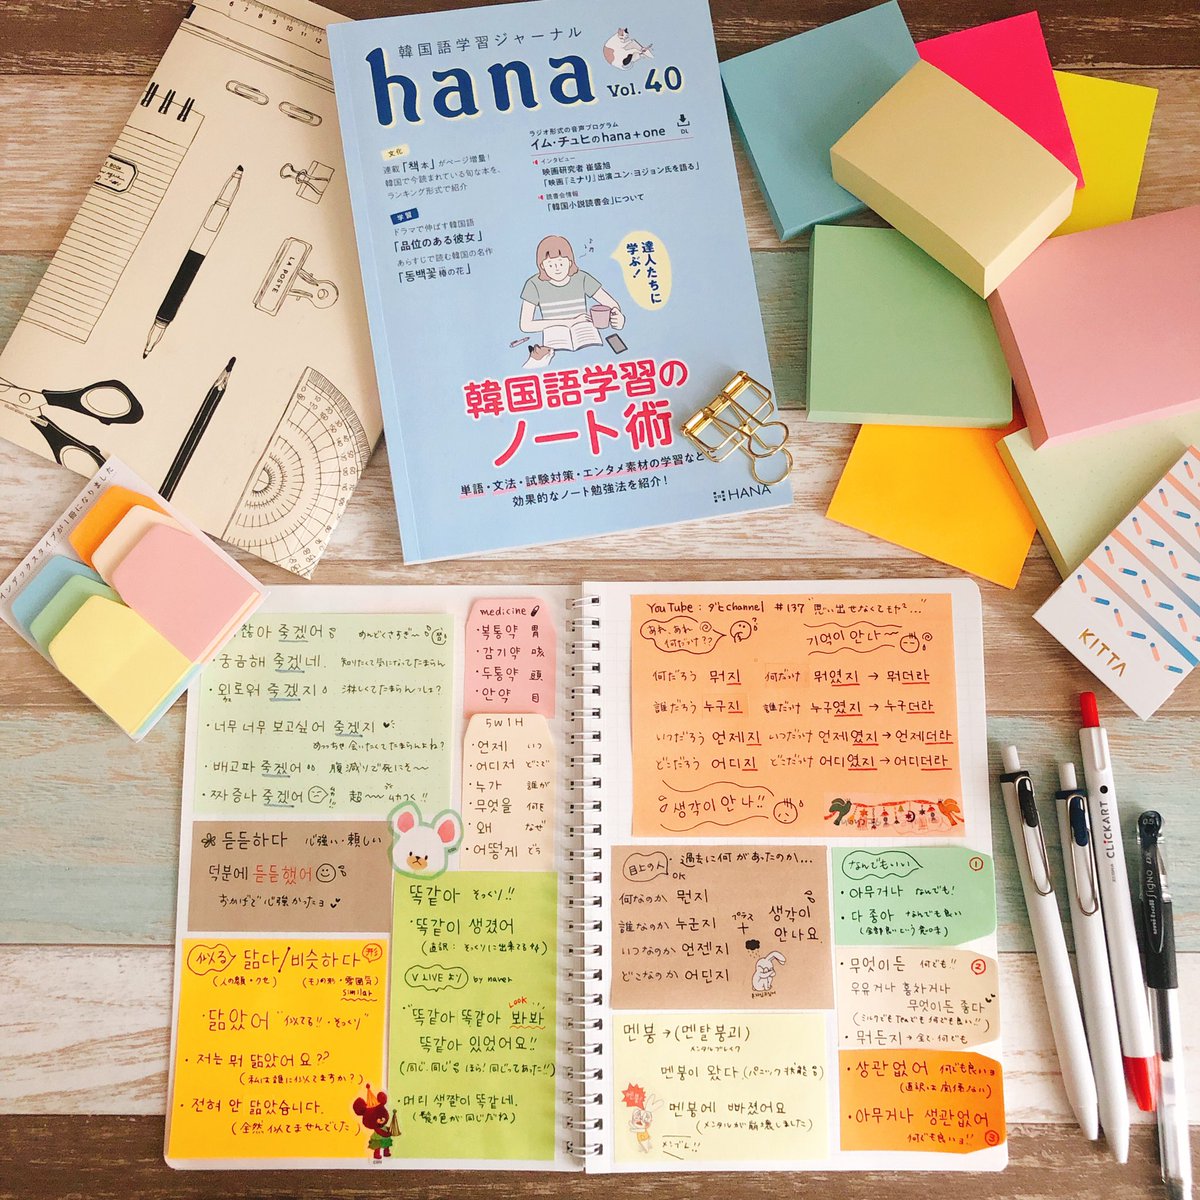 韓国語学習ジャーナル
hana
Vol.40
文化
連載「책本」がページ増量!
韓国で今読まれている旬な本を、
ランキング形式で紹介
学習
ドラマで伸ばす韓国語
「品位のある彼女」
あらすじで読む韓国の名作
「동백꽃 椿の花」
ラジオ形式の音声プログラム
イム・チュヒのhana+one
DL
インタビュー
映画研究者 崔盛旭
「映画『ミナリ』出演ユン・ヨジョン氏を語る」
読書会情報
「韓国小説読書会」について
達人たちに
学ぶ!
韓国語学習の
ノート術
単語・文法・試験対策・エンタメ素材の学習など
効果的なノート勉強法を紹介!
HANA
LA POSTE
インデックスタイプが1冊になりました
KITTA
CLICKART
SIGNO
찮아 죽겠어 めんどくさすぎ〜
・궁금해 죽겠네. 知りたくて気になってたまらん
・외로워 죽겠지 淋しくてたまらんっしょ?
・너무 너무 보고싶어 죽겠지
めっちゃ会いたくてたまらんよね?
・배고파 죽겠어 腹減りで死にそ〜
・짜증나 죽겠어 超〜ムカつく!!
medicine
・복통약 胃
・감기약 咳
・두통약 頭
・안약 目
5W1H
・언제 いつ
・어디저 どこで
・누가 誰が
・무엇을 何を
・왜 なぜ
・어떻게 どう
든든하다 心強い・頼しい
덕분에 든든했어
おかげで心強かったョ
似る 닮다/비슷하다
(人の顔・クセ) (モノの形・雰囲気)
similar
・닮았어 "似てる!!・そっくり"
・저는 뭐 닮았어요??
(私は誰に似てますか?)
・전혀 안 닮았습니다.
(全然似てませんでした)
똑같아 そっくり!!
・똑같이 생겼어
(直訳:そっくりに出来てる)
V LIVEより by naver
LOOK
・똑같아 똑같아 봐봐
똑같아 있었어요!!
(同じ、同じ ほら!同じってあった!!)
・머리 색깔이 똑같네.
(髪の色が同じだね)
YouTube:다 channel #137 "思い出せなくてもた…"
あれ、あれ
何だっけ??
기억이 안 나〜
何だろう 뭐지 何だっけ 뭐였지→뭐더라
誰だろう 누구지 誰だっけ 누구였지→누구더라
いつだろう 언제지 いつだっけ 언제였지→언제더라
どこだろう 어디지 どこだっけ 어디였지→어디더라
생각이 안 나!!
目上の人 OK
・過去に何があったのか…
何なのか 뭔지
誰なのか 누군지
いつなのか 언젠지
どこなのか 어딘지
プラス
+
생각이
안나요
なんでもいい ①
・아무거나 なんでも!
・다 좋아 なんでも良い
(全部良いという意味)
・무엇이든 何でも!! ②
우유거나 홍차거나
무엇이든 좋다
(ミルクでもTeaでも何でも良い!!)
・뭐든지 → 全て・何でも
・상관없어 何でも良いョ
(直訳は関係ない)
・아무거나 생관없어
何でも良いョ!! ③
멘붕→(멘탈붕괴)
メンタルブレイク
멘붕이 왔다 (パニック状態)
멘붕에 빠졌어요
(メンタルが崩壊しました)